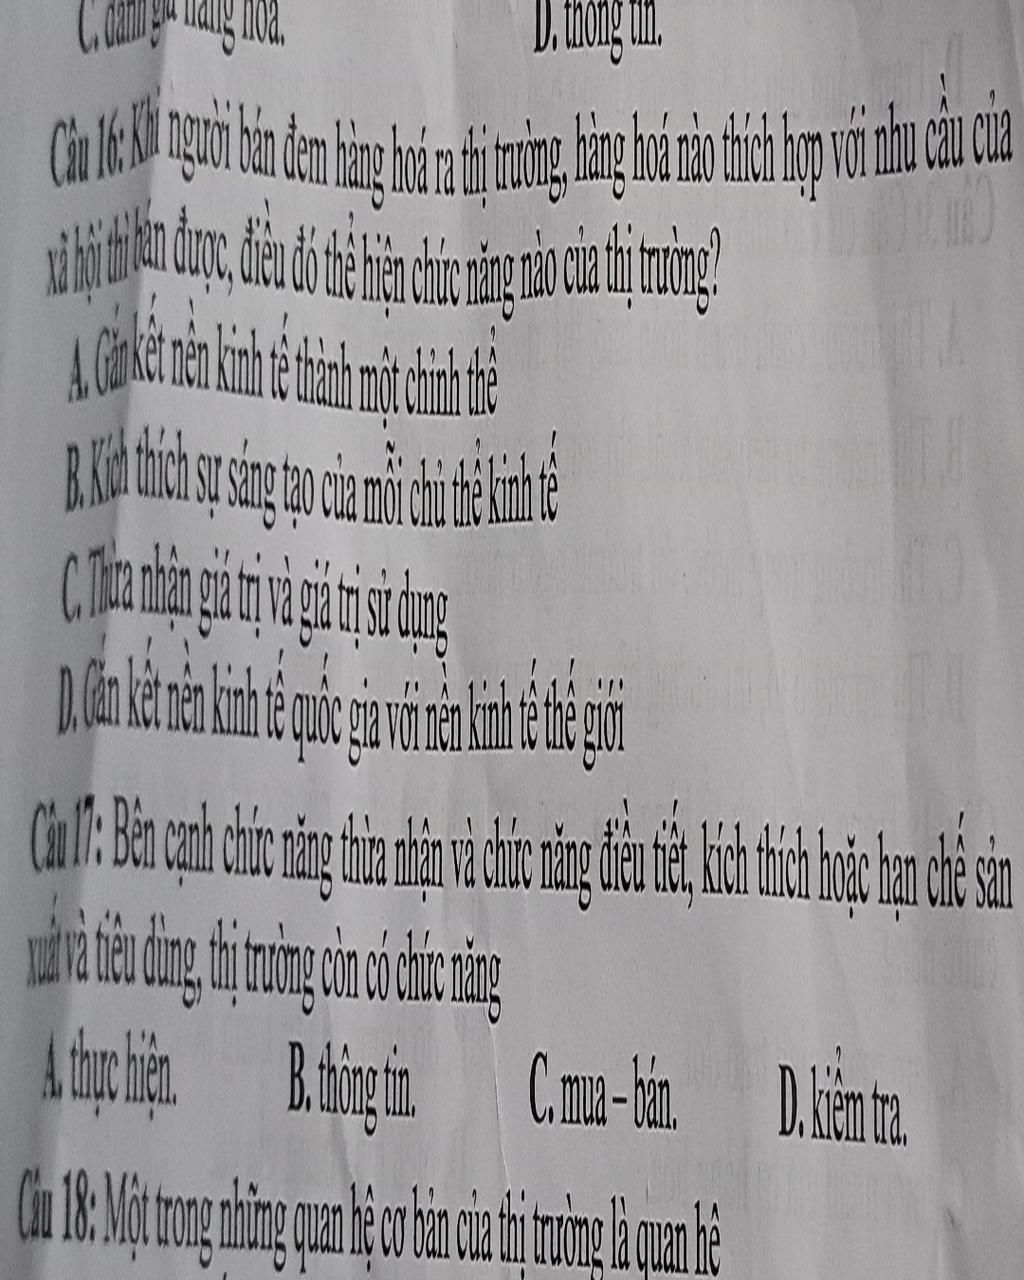 C. đánh giá hàng hóa. D. thông tin.
Câu 16: Khi người bán đem hàng hoá ra thị trường, hàng hoá nào thích hợp với nhu cầu của
xã hội thì bán được, điều đó thể hiện chức năng nào của thị trường?
A. Gắn kết nền kinh tế thành một chỉnh thể
B. Kích thích sự sáng tạo của mỗi chủ thể kinh tế
C. Thừa nhận giá trị và giá trị sử dụng
D. Gắn kết nền kinh tế quốc gia với nền kinh tế thế giới
Câu 17: Bên cạnh chức năng thừa nhận và chức năng điều tiết, kích thích hoặc hạn chế sản
xuất và tiêu dùng, thị trường còn có chức năng
A. thực hiện. B. thông tin. C. mua – bán. D. kiểm tra.
Câu 18: Một trong những quan hệ cơ bản của thị trường là quan hê